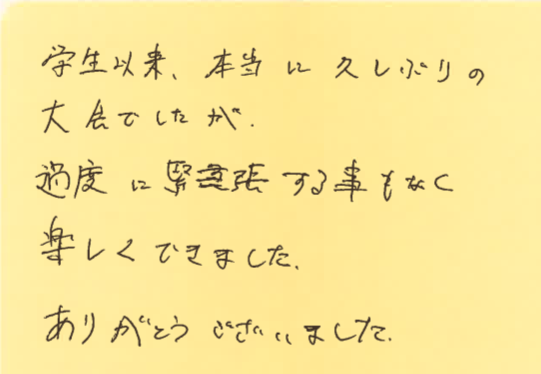 学生以来、本当に久しぶりの
大会でしたが、
過度に緊張する事もなく
楽しくできました。
ありがとうございました。